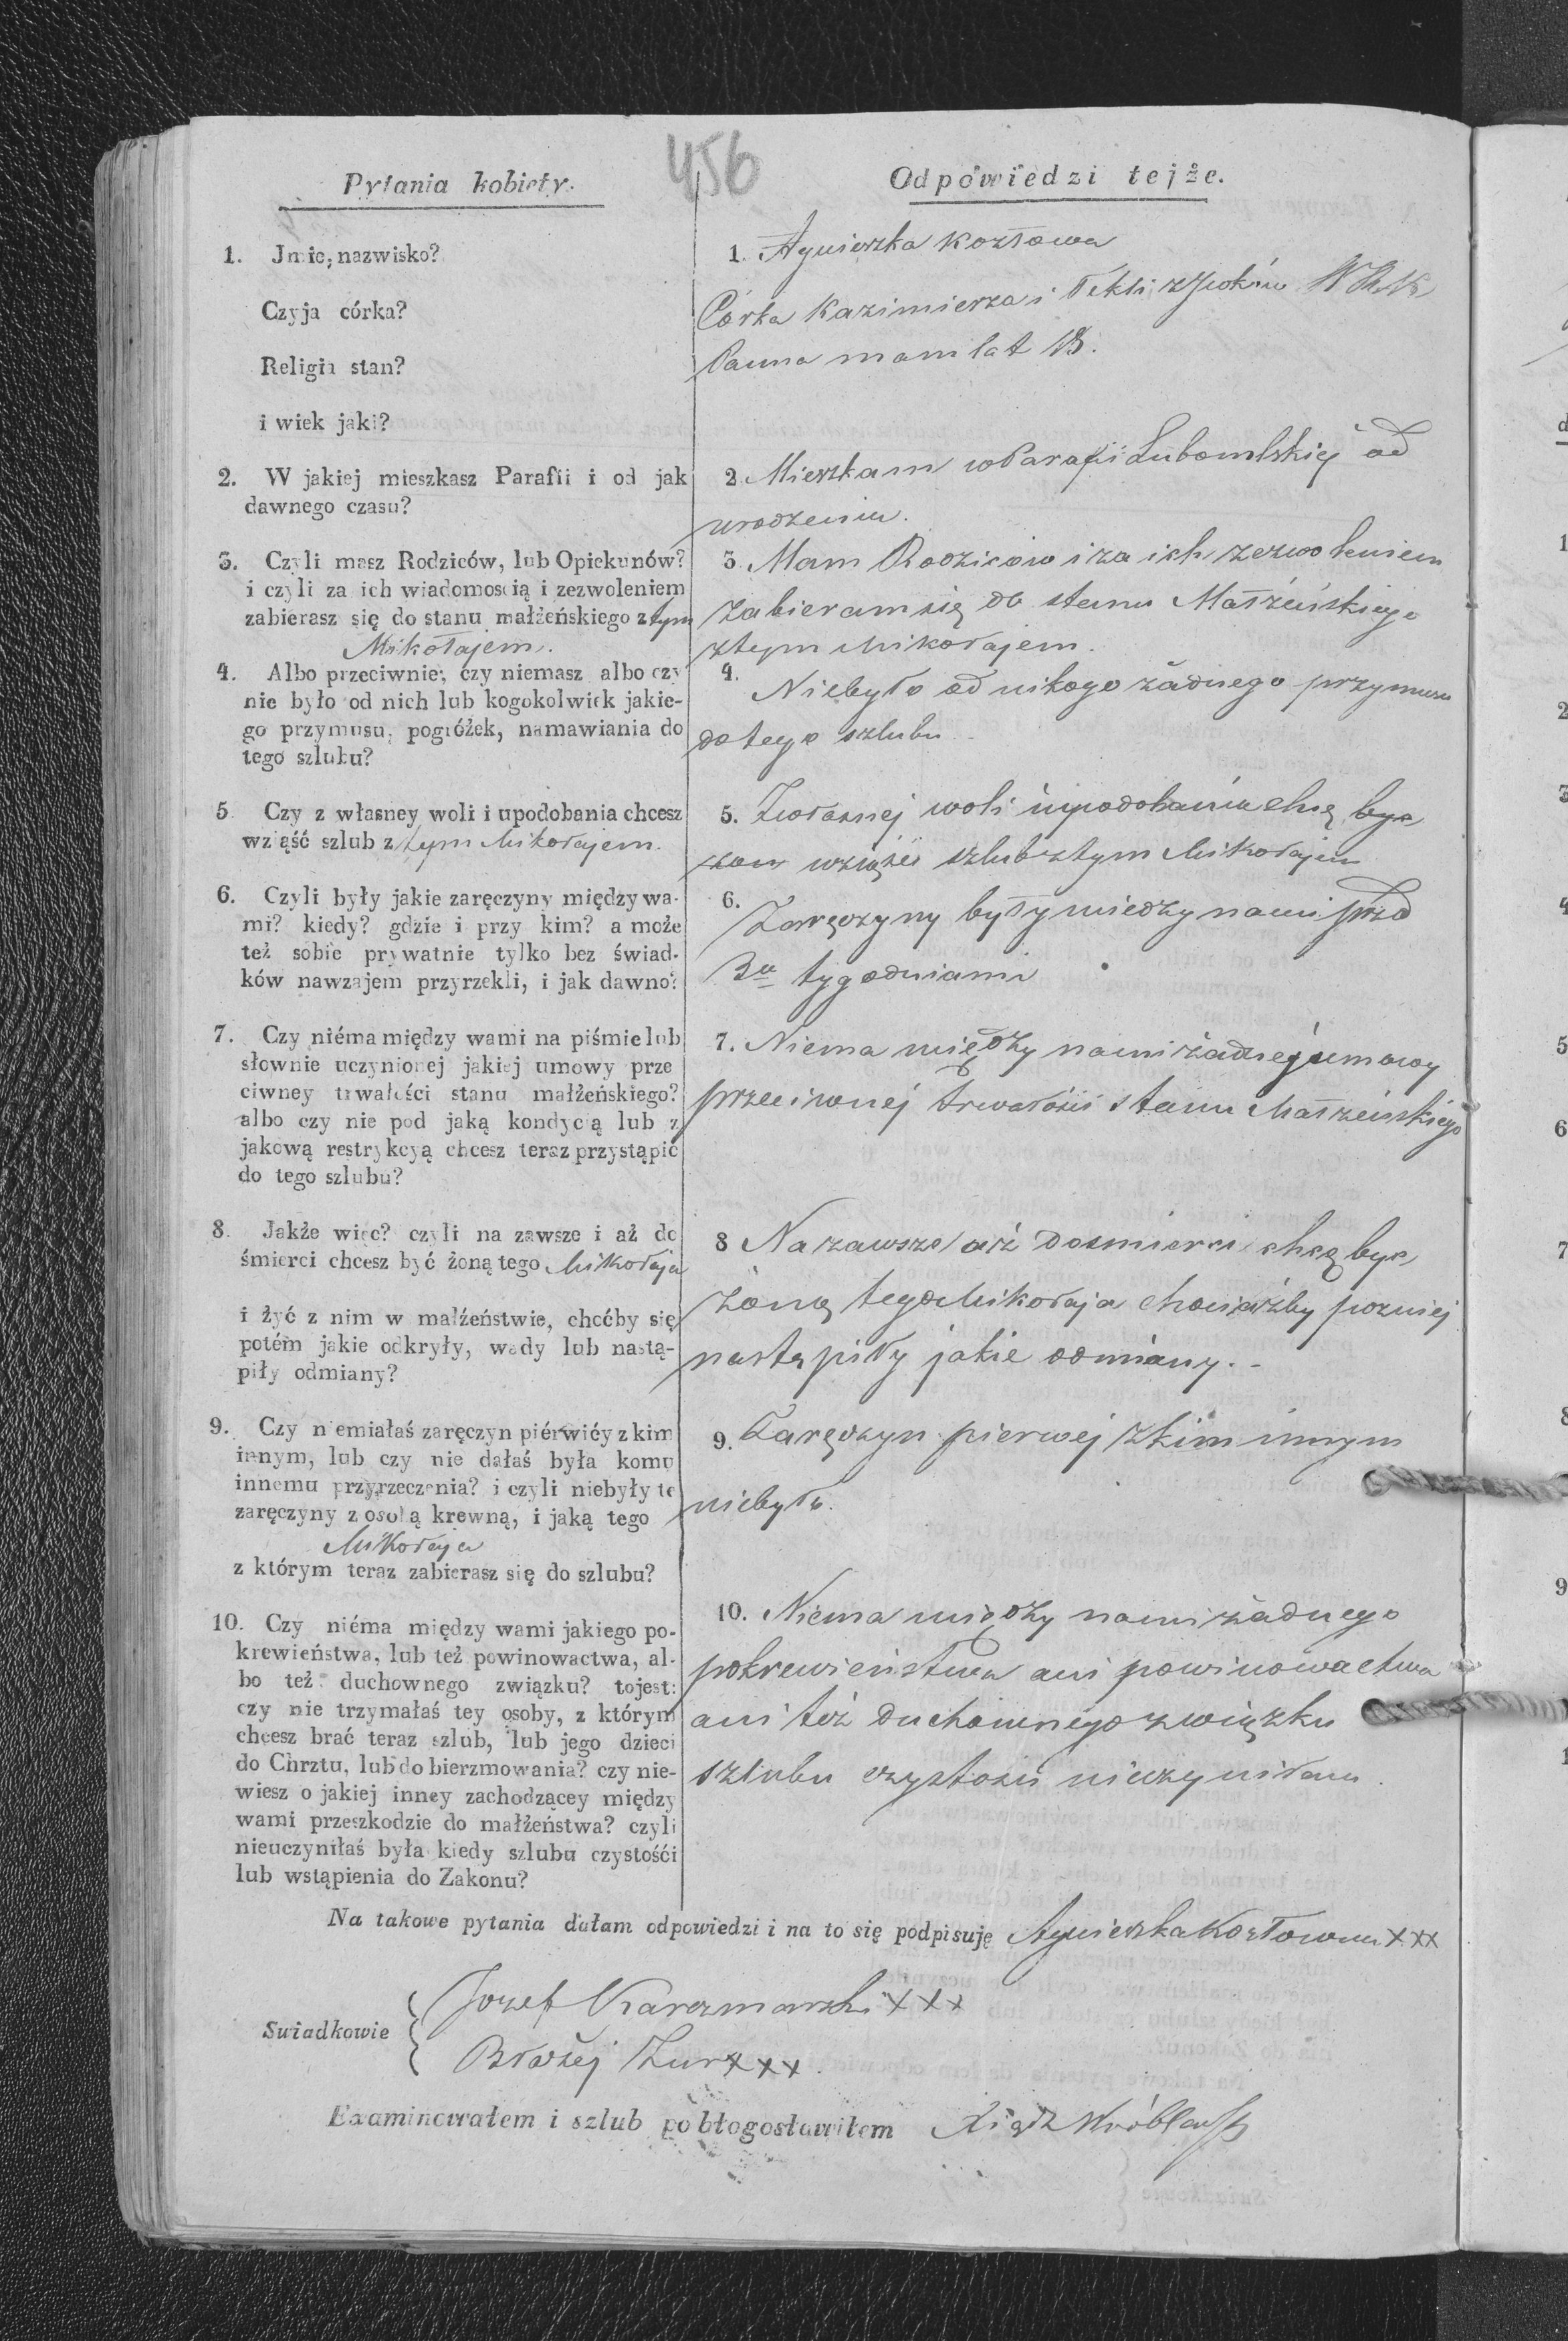 456
Pytania kobiety.
Odpowiedzi tejże.
1. Jmie, nazwisko?
Czyja córka?
Religia stan?
i wiek jaki?
1. Agnieszka Kozłowa
Córka Kazimierza i Tekli
Panna mam lat 18.
2. W jakiej mieszkasz Parafii i od jak
dawnego czasu?
2. Mieszkam w Parafii Lubomlskiej od
urodzenia.
3. Czyli masz Rodziców, lub Opiekunów?
i czyli za ich wiadomością i zezwoleniem
zabierasz się do stanu małżeńskiego z tym
Mikołajem.
3. Mam Rodziców i za ich zezwoleniem
zabieram się do stanu Małżeńskiego
z tym Mikołajem.
4. Albo przeciwnie, czy niemasz albo czy
nie było od nich lub kogokolwiek jakie-
go przymusu, pogróżek, namawiania do
tego szlubu?
4. Niebyło od nikogo żadnego przymusu
do tego szlubu.
5. Czy z własney woli i upodobania chcesz
wziąść szlub z tym Mikołajem.
5. Zwłasnej woli i upodobania chcę
wziąść szlub z tym Mikołajem
6. Czyli były jakie zaręczyny między wa-
mi? kiedy? gdzie i przy kim? a może
też sobie prywatnie tylko bez świad-
ków nawzajem przyrzekli, i jak dawno?
6. Zaręczyny były miedzy nami przed
3a tygodniami
7. Czy niéma między wami na piśmie lub
słownie uczynionej jakiej umowy prze
ciwney trwałości stanu małżeńskiego?
albo czy nie pod jaką kondycią lub z
jakową restrykcyą chcesz teraz przystąpić
do tego szlubu?
7. Niema między nami żadnej umowy
przeciwnej trwałości stanu Małżeńskiego
8. Jakże więc? czyli na zawsze i aż do
śmierci chcesz być żoną tego Mikołaja
i żyć z nim w małżeństwie, choćby się
potém jakie odkryły, wady lub nastą-
piły odmiany?
8 Na zawsze aż do smierci chcę byc
żoną tego Mikołaja chociażby pozniej
nastąpiły jakie odmiany.
9. Czy niemiałaś zaręczyn piérwićy z kim
innym, lub czy nie dałaś była komu
innemu przyrzeczenia? i czyli niebyły te
zaręczyny z osobą krewną, i jaką tego
Mikołaja
z którym teraz zabierasz się do szlubu?
9. Zaręczyn pierwej z kim innym
niebyło.
10. Czy niéma między wami jakiego po-
krewieństwa, lub też powinowactwa, al-
bo też duchownego związku? tojest:
czy nie trzymałaś tey osoby, z którym
chcesz brać teraz szlub, lub jego dzieci
do Chrztu, lub do bierzmowania? czy nie-
wiesz o jakiej inney zachodzącey między
wami przeszkodzie do małżeństwa? czyli
nieuczyniłaś była kiedy szlubu czystości
lub wstąpienia do Zakonu?
10. Niema między nami żadnego
pokrewieństwa ani powinowactwa
ani też duchownego związku
szlubu czystości nieczyniłam.
Na takowe pytania dałam odpowiedzi i na to się podpisuję Agnieszka Kozłowna XXX
Swiadkowie
Jozef Karczmarski XXX
Błażej Zur XXX.
Examinowałem i szlub pobłogosławiłem Xiądz